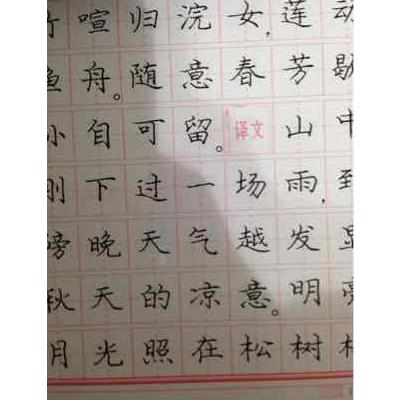 竹喧归浣女,莲动
渔舟。随意春芳歇
孙自可留。译文山中
刚下过一场雨,到
傍晚天气越发显
秋天的凉意。明亮
月光照在松树林